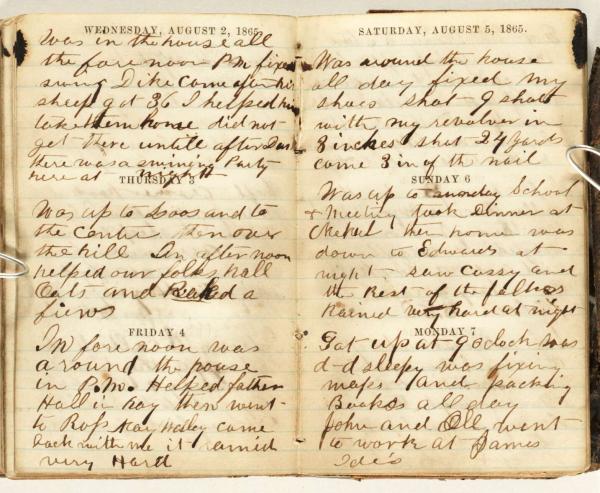 WEDNESDAY, AUGUST 2, 1865.
Was in the house all
the fore noon P.M. fixed
swing Dike came after his
sheep got 36 I helped him
take them home did not
get there untill after Dark
there was a swining Party
here at night
THURSDAY 3
Was up to and to
the Center then over
the hill In after noon
helped our folks hall
Oats and Raked a
fiews
FRIDAY 4
In fore noon was
around the house
in P.M. Helped father
Hall in hay then went
to Ross Hay came
back with me it rained
very Hard
SATURDAY, AUGUST 5, 1865.
Was around the house
all day fixed my
shoes shot 9 shots
with my revolver in
8 inches shot 24 yards
come 3 in of the nail
SUNDAY 6
Was up to sunday School
& Meeting took Dinner at
then home was
down to Edwards at
night saw Cassy and
the Rest of the folkes
Rained very hard at night
MONDAY 7
Gat up at 9 oclock was
d-d sleepy was fixing
maps and packing
Books all day
John and Oll went
to work at James
Ide's